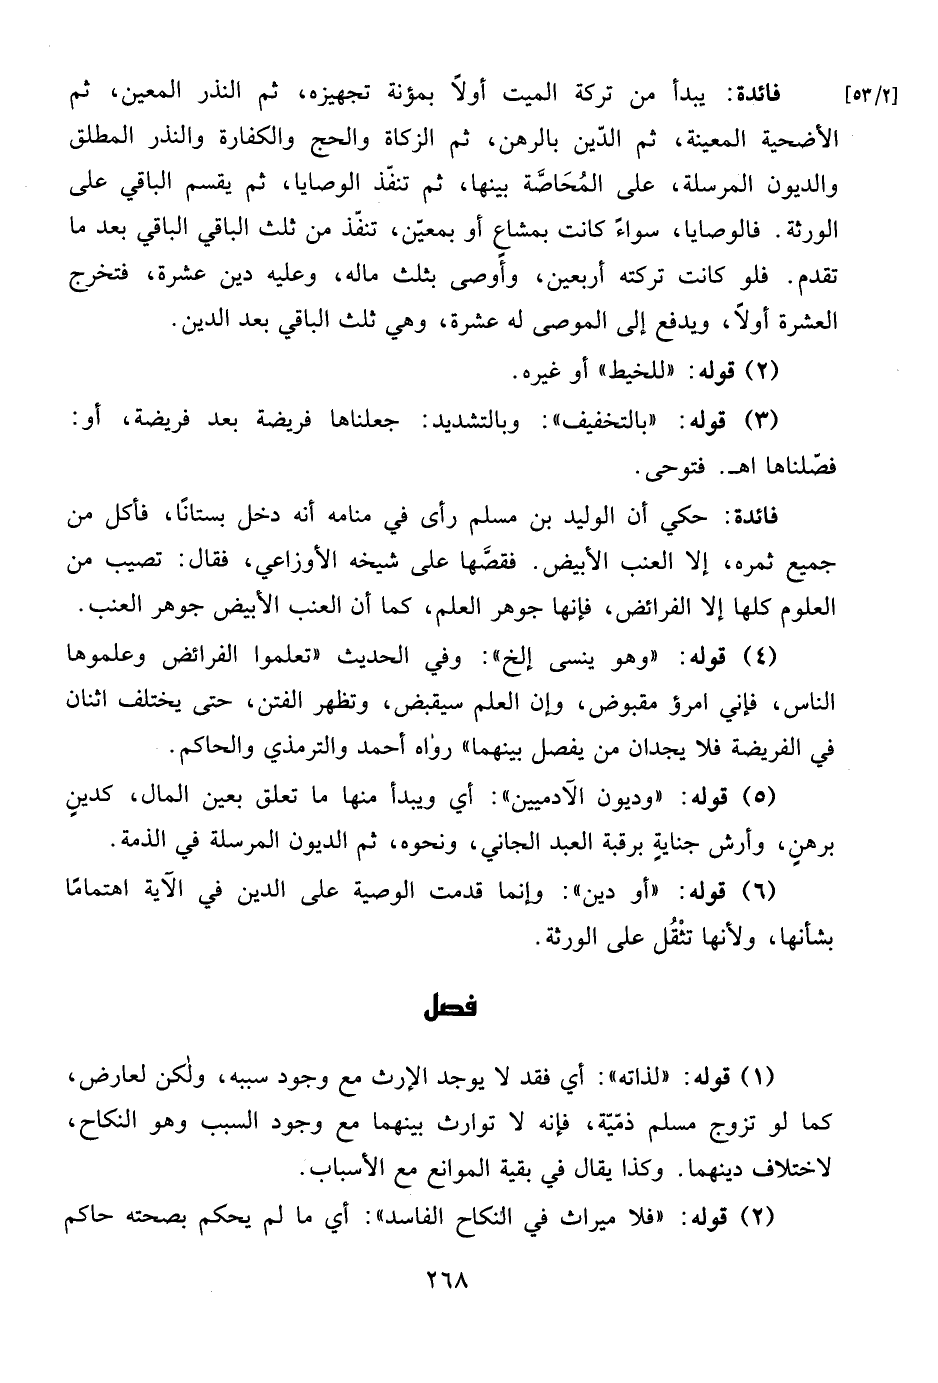 [٥٣/٢] فائدة: يبدأ من تركة الميت أولاً بمؤنة تجهيزه، ثم النذر المعين، ثم
الأضحية المعينة، ثم الدّين بالرهن، ثم الزكاة والحج والكفارة والنذر المطلق
والديون المرسلة، على المُحَاصَّة بينها، ثم تنفّذ الوصايا، ثم يقسم الباقي على
الورثة. فالوصايا، سواءً كانت بمشاع أو بمعيّن، تنفّذ من ثلث الباقي الباقي بعد ما
تقدم. فلو كانت تركته أربعين، وأوصى بثلث ماله، وعليه دين عشرة، فتخرج
العشرة أولاً، ويدفع إلى الموصى له عشرة، وهي ثلث الباقي بعد الدين.
(٢) قوله: «للخيط» أو غيره.
(٣) قوله: «بالتخفيف»: وبالتشديد: جعلناها فريضة بعد فريضة، أو:
فصّلناها اهـ. فتوحي.
فائدة: حكي أن الوليد بن مسلم رأى في منامه أنه دخل بستانًا، فأكل من
جميع ثمره، إلا العنب الأبيض. فقصَّها على شيخه الأوزاعي، فقال: تصيب من
العلوم كلها إلا الفرائض، فإنها جوهر العلم، كما أن العنب الأبيض جوهر العنب.
(٤) قوله: «وهو ينسى إلخ»: وفي الحديث «تعلموا الفرائض وعلموها
الناس، فإني امرؤ مقبوض، وإن العلم سيقبض، وتظهر الفتن، حتى يختلف اثنان
في الفريضة فلا يجدان من يفصل بينهما» رواه أحمد والترمذي والحاكم.
(٥) قوله: «وديون الآدميين»: أي ويبدأ منها ما تعلق بعين المال، كدينٍ
برهنٍ، وأرش جنايةٍ برقبة العبد الجاني، ونحوه، ثم الديون المرسلة في الذمة.
(٦) قوله: «أو دين»: وإنما قدمت الوصية على الدين في الآية اهتمامًا
بشأنها، ولأنها تثْقُل على الورثة.
فصل
(١) قوله: «لذاته»: أي فقد لا يوجد الإرث مع وجود سببه، ولكن لعارض،
كما لو تزوج مسلم ذمّيّة، فإنه لا توارث بينهما مع وجود السبب وهو النكاح،
لاختلاف دينهما. وكذا يقال في بقية الموانع مع الأسباب.
(٢) قوله: «فلا ميراث في النكاح الفاسد»: أي ما لم يحكم بصحته حاكم
٢٦٨